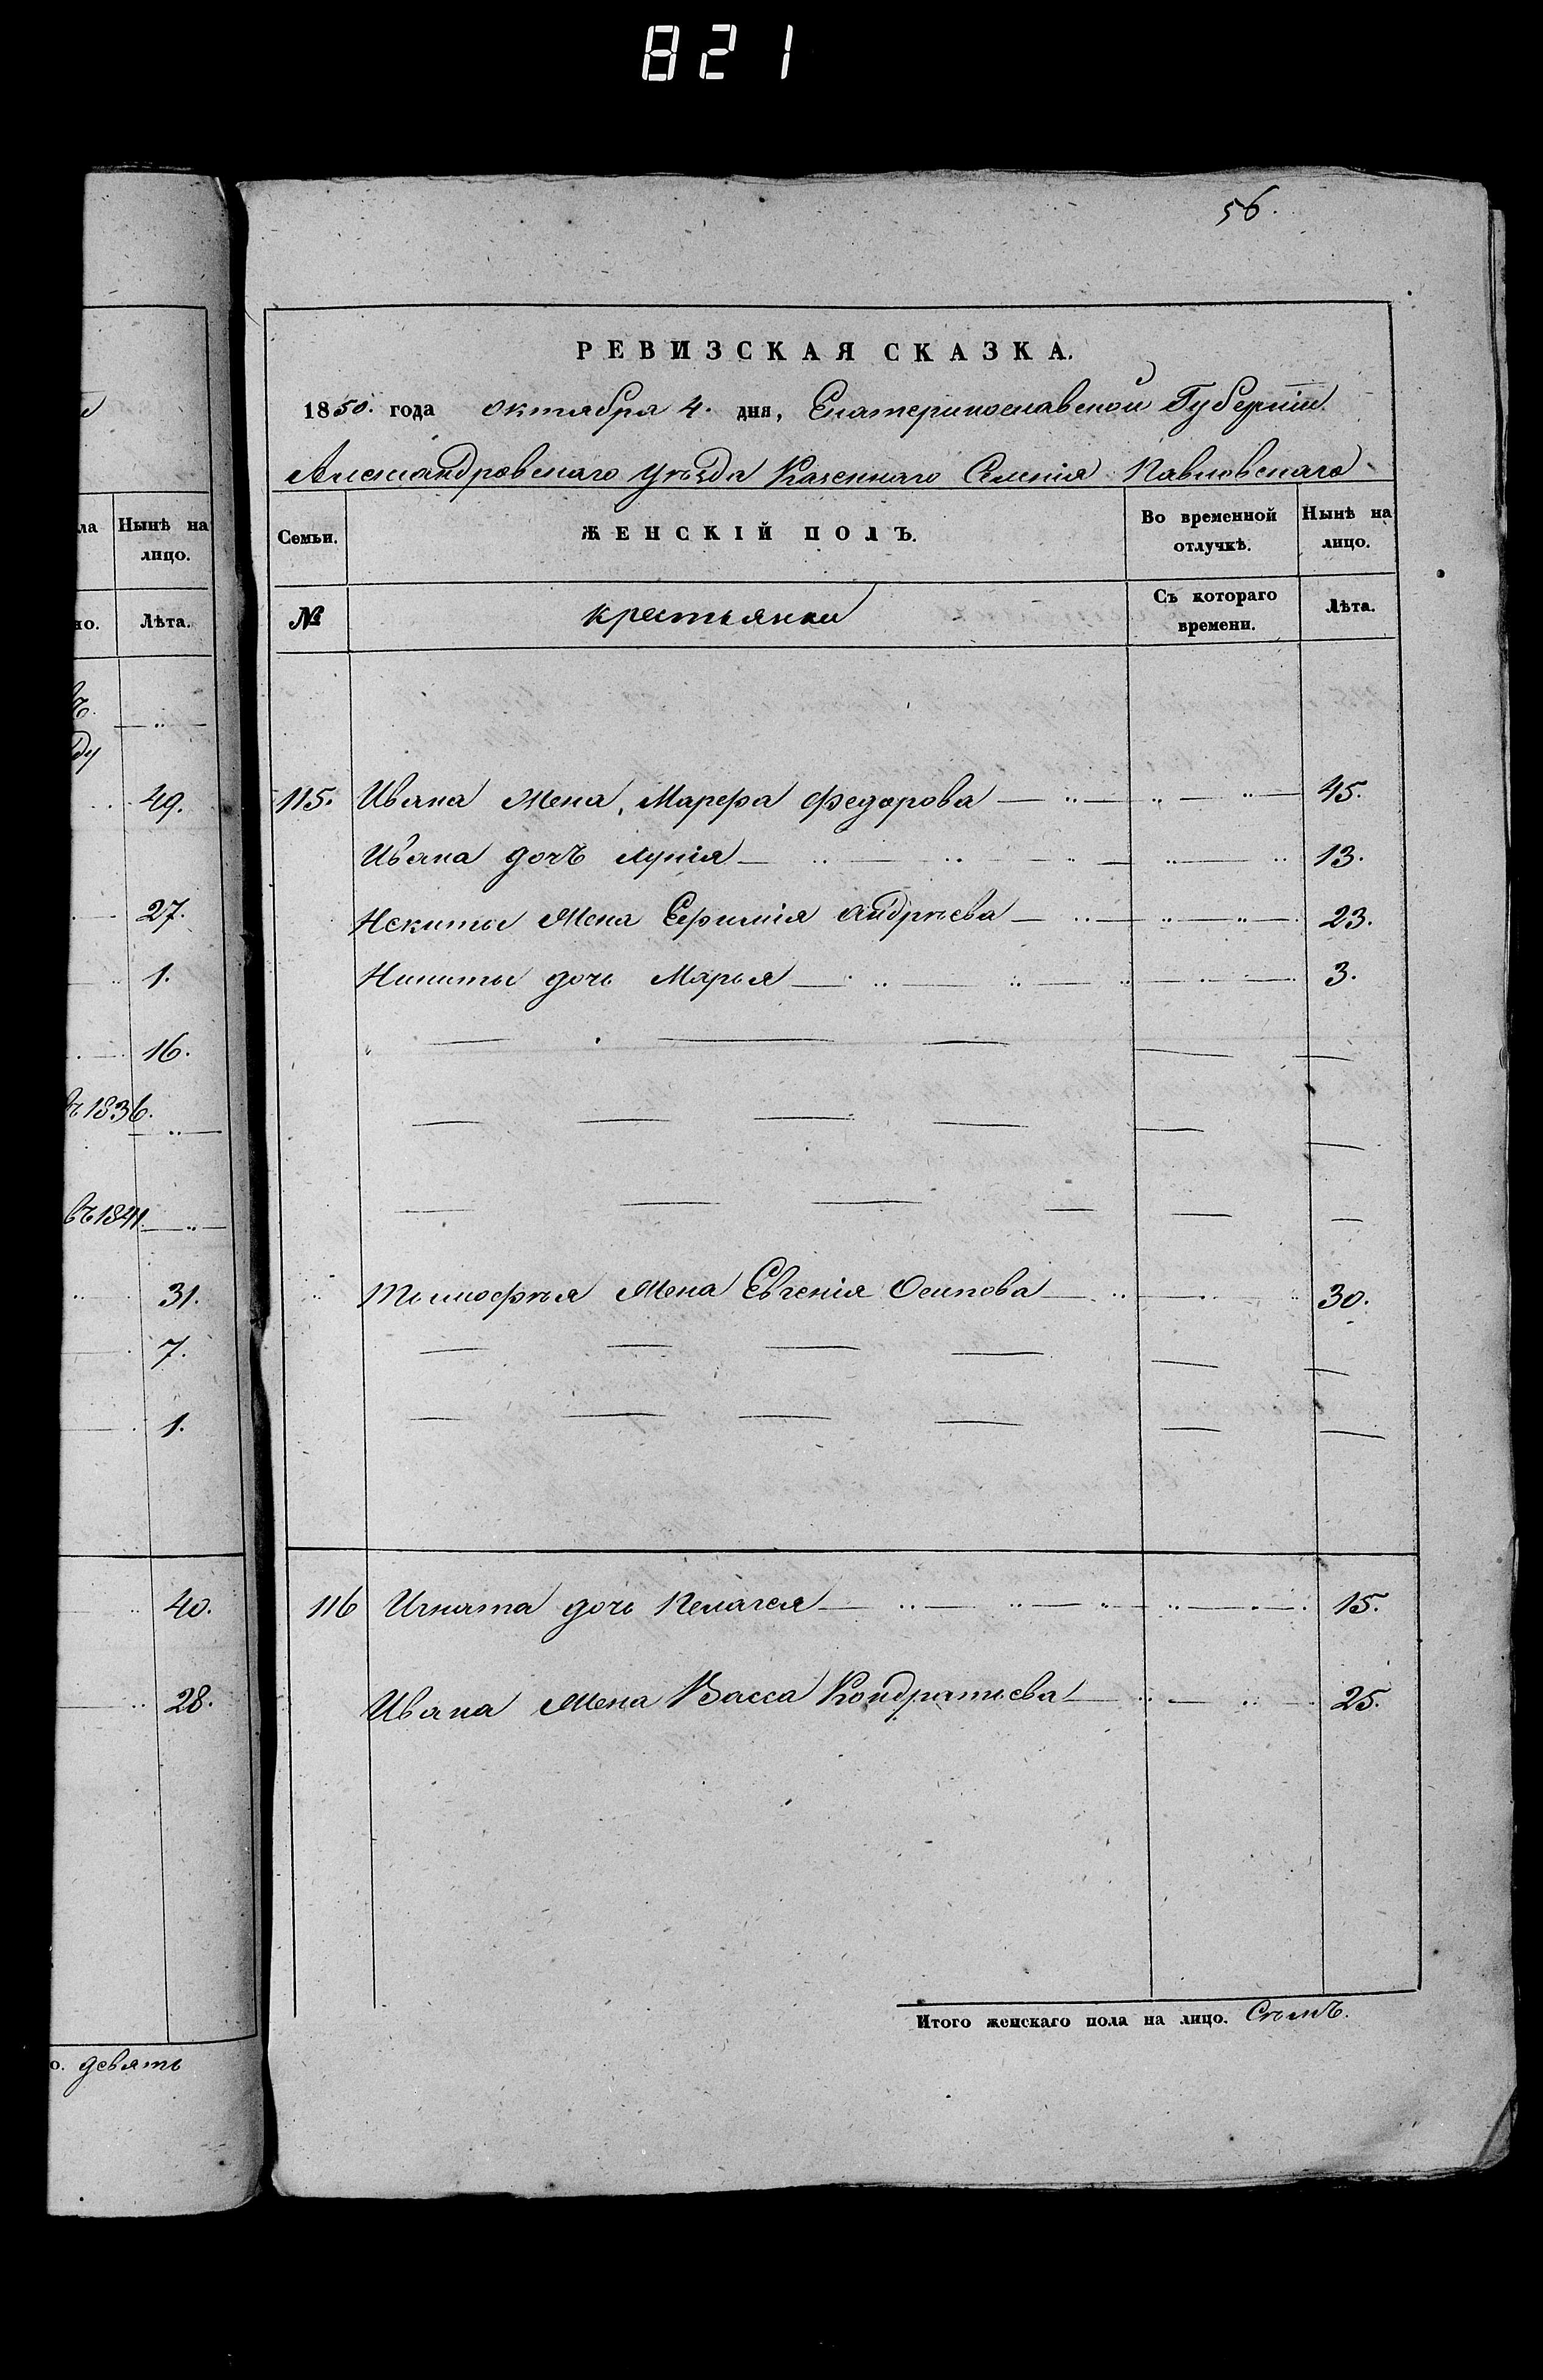 821
56.
РЕВИЗСКАЯ СКАЗКА.
1850. года октября 4. дня, Екатеринославской Губерніи
Александровскаго уѣзда Казеннаго Селенія Павловскаго
ла
Нынѣ на лицо.
но.
Лѣта.
Семьи.
ЖЕНСКІЙ ПОЛЪ.
Во временной отлучкѣ.
Нынѣ на лицо.
№
крестьянки
Съ котораго времени.
Лѣта.
ду
49.
27.
1.
16.
1836.
въ 1841
31.
7.
1.
40.
28.
о. девять
115. Ивана жена, Марефа Федорова 45.
Ивана дочъ Лукія 13.
Никиты жена Ефимія Андрѣева 23.
Никиты дочь Марья 3.
жена Евгенія Осипова 30.
116 Игната дочь Пелагея 15.
Ивана жена Васса Кондратьева 25.
Итого женскаго пола на лицо. Сѣмъ.